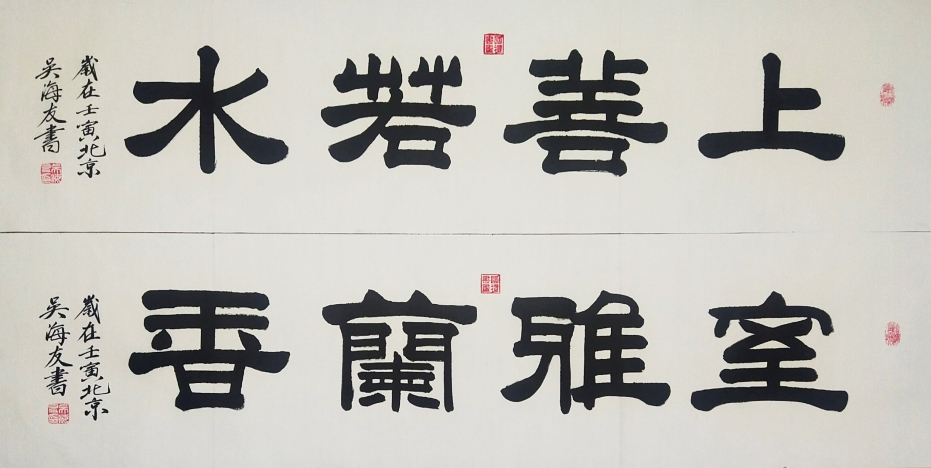 上善若水
歲在壬寅北京
吴海友書
室雅蘭香
歲在壬寅北京
吴海友書